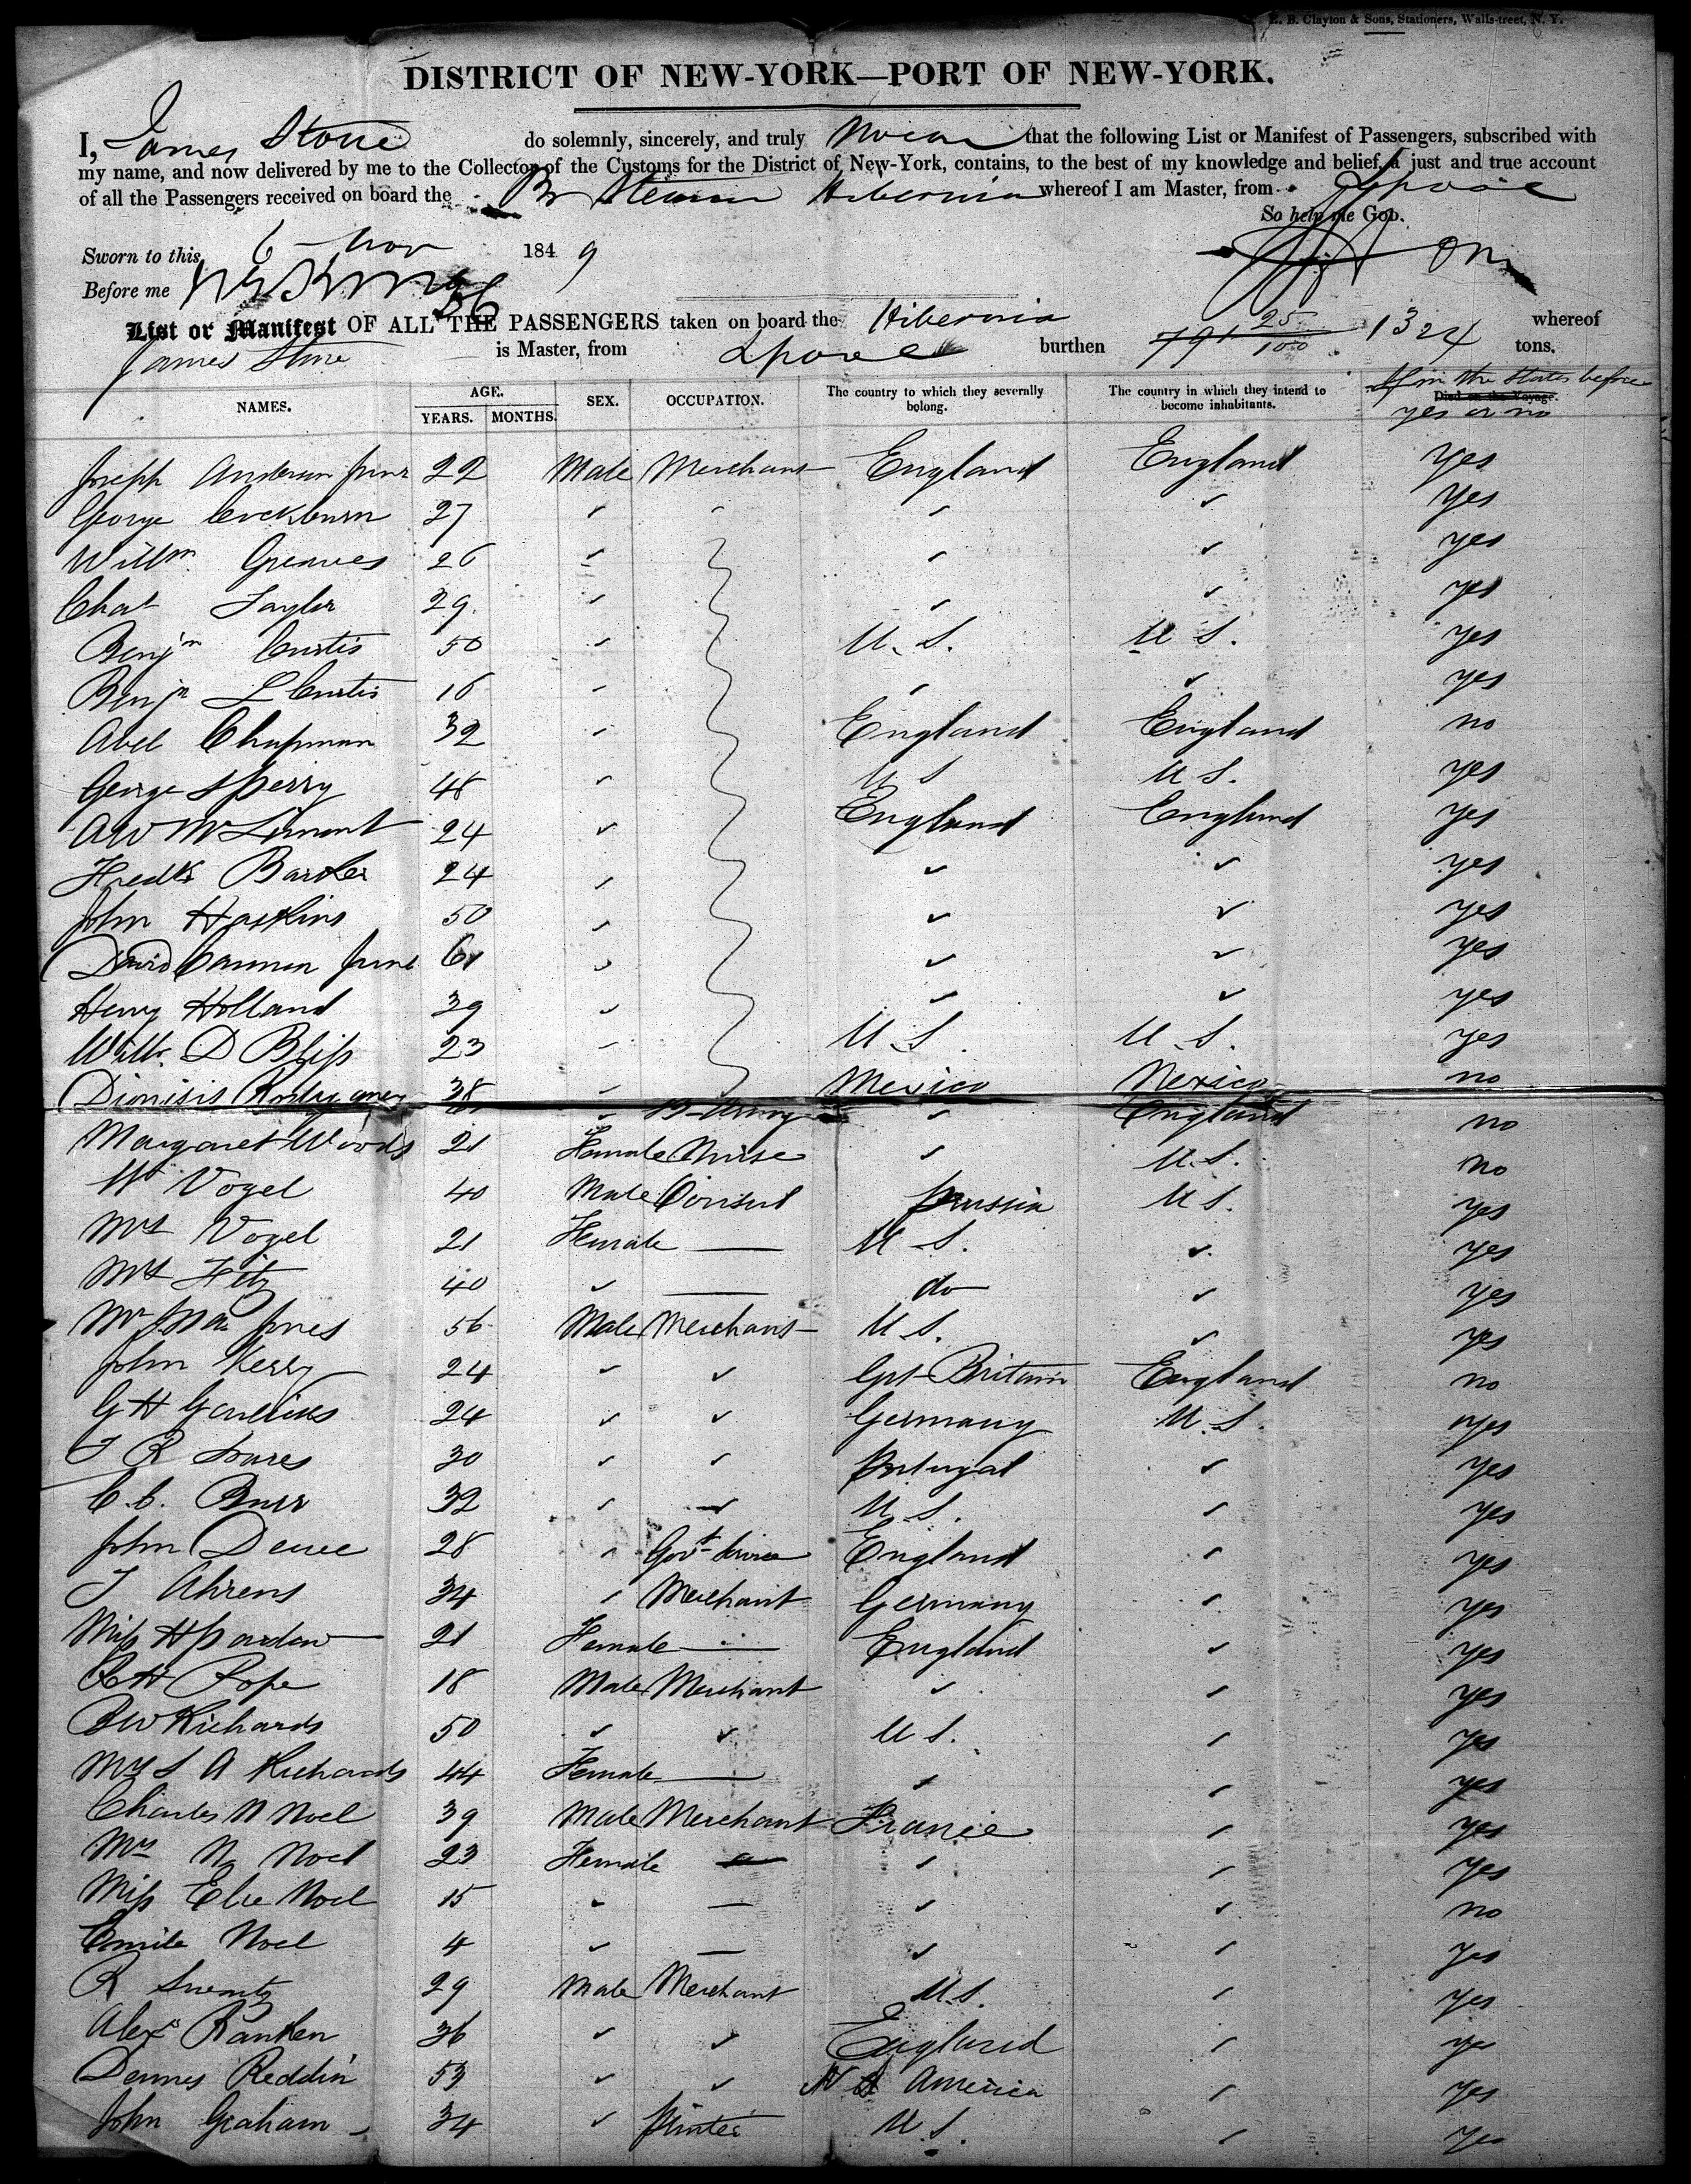 E. B. Clayton & Sons, Stationers, Wall-street, N. Y.
DISTRICT OF NEW-YORK—PORT OF NEW-YORK.
I, James Stone do solemnly, sincerely, and truly swear that the following List or Manifest of Passengers, subscribed with
my name, and now delivered by me to the Collector of the Customs for the District of New-York, contains, to the best of my knowledge and belief, a just and true account
of all the Passengers received on board the Br Steamer Hibernia whereof I am Master, from Lpool
So help me GOD.
Sworn to this 6 Nov 1849
Before me
List or Manifest OF ALL THE PASSENGERS taken on board the Hibernia whereof
James Stone is Master, from Lpool burthen 791 25/100 1324 tons.
NAMES. AGE. YEARS. MONTHS. SEX. OCCUPATION. The country to which they severally belong. The country in which they intend to become inhabitants. Died on the Voyage. If in the States before yes or no
Joseph Anderson Junr 22 Male Merchant England England Yes
George Cockburn 27 Yes
Willm Greaves 26 yes
Chas Taylor 29 yes
Benjn Curtis 50 U.S. U S. yes
Benjn L Curtis 16 yes
Abel Chapman 32 England England no
George Sperry 48 U S U S. yes
A W McLimont 24 England England yes
Fredk Barker 24 yes
John Haskins 50 yes
David Cannon Junr 61 yes
Henry Holland 39 yes
Willm D Bliss 23 U.S. U.S. yes
Dionisis 38 Mexico Mexico no
B Army England no
Margaret Woods 21 Female Nurse U.S. no
Vogel 40 Male Consul Prussia U S. yes
Mrs Vogel 21 Female — U S. yes
Mrs Fitz 40 — do yes
Mr Jones 56 Male Merchant U S. yes
John Kerry 24 Gt Britain England no
G H 24 Germany U.S yes
J R Soares 30 Portugal yes
C. C. Burr 32 U S. yes
John 28 Govt Service England yes
J Ahrens 34 Merchant Germany yes
Miss H Pardow 21 Female — England yes
R H Pope 18 Male Merchant yes
B W Richards 50 U S. yes
Mrs S A Richards 44 Female — yes
Charles N Noel 39 Male Merchant France yes
Mrs N Noel 23 Female yes
Miss Noel 15 — no
Emile Noel 4 — yes
R 29 Male Merchant U.S. yes
Alexr Ranken 36 England ye
Dennis Reddin 53 N A America yes
John Graham 34 Printer U S. yes